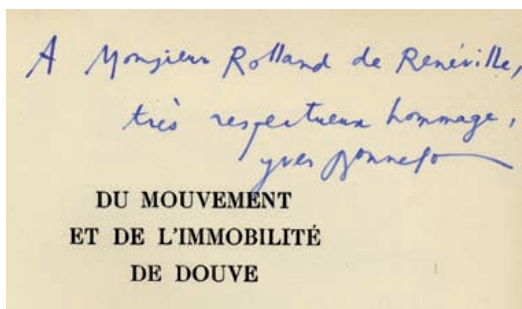 A Monsieur Rolland de Renéville,
très respectueux hommage,
Yves Bonnefoy
DU MOUVEMENT
ET DE L'IMMOBILITÉ
DE DOUVE